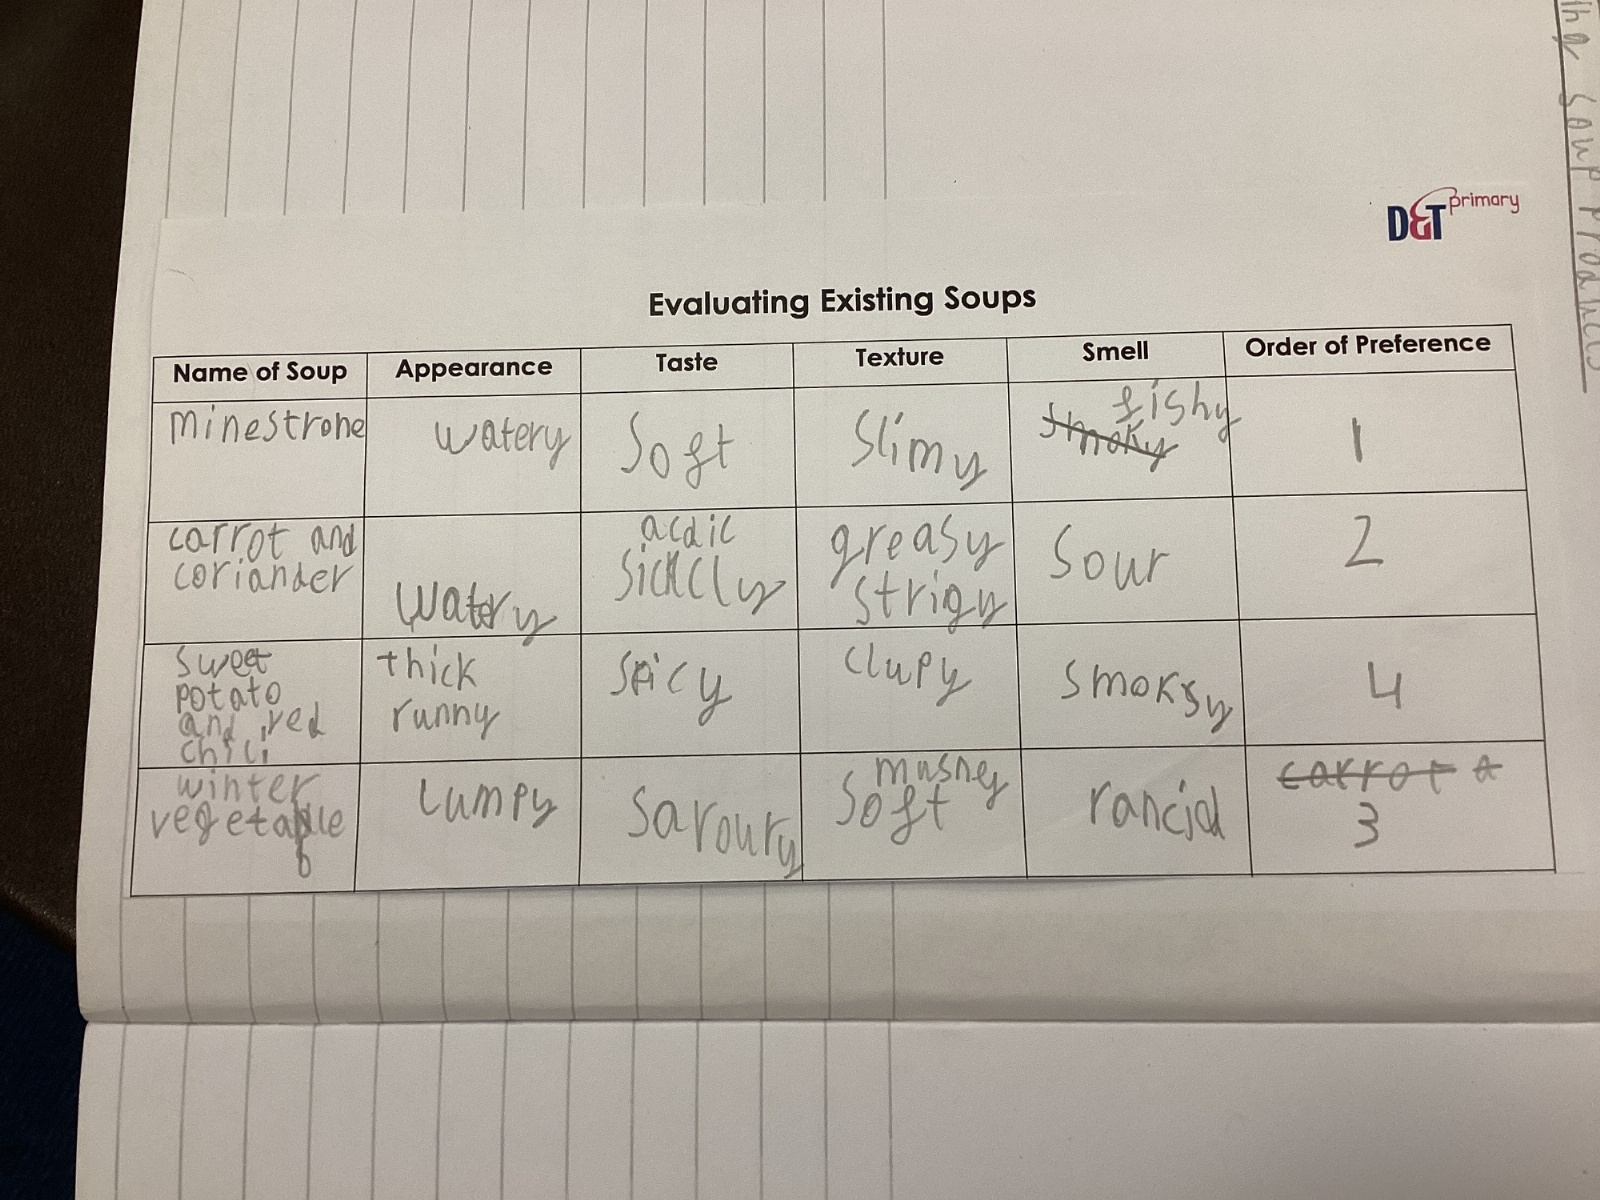 D&T primary
Evaluating Existing Soups
Name of Soup Appearance Taste Texture Smell Order of Preference
minestrone watery Soft Slimy smoky fishy 1
carrot and coriander watery acdic sickcly greasy strigy Sour 2
sweet potato and red chili thick runny spicy clupy smoksy 4
winter vegetable lumpy Savoury mushey soft rancid carrot a 3
soup products